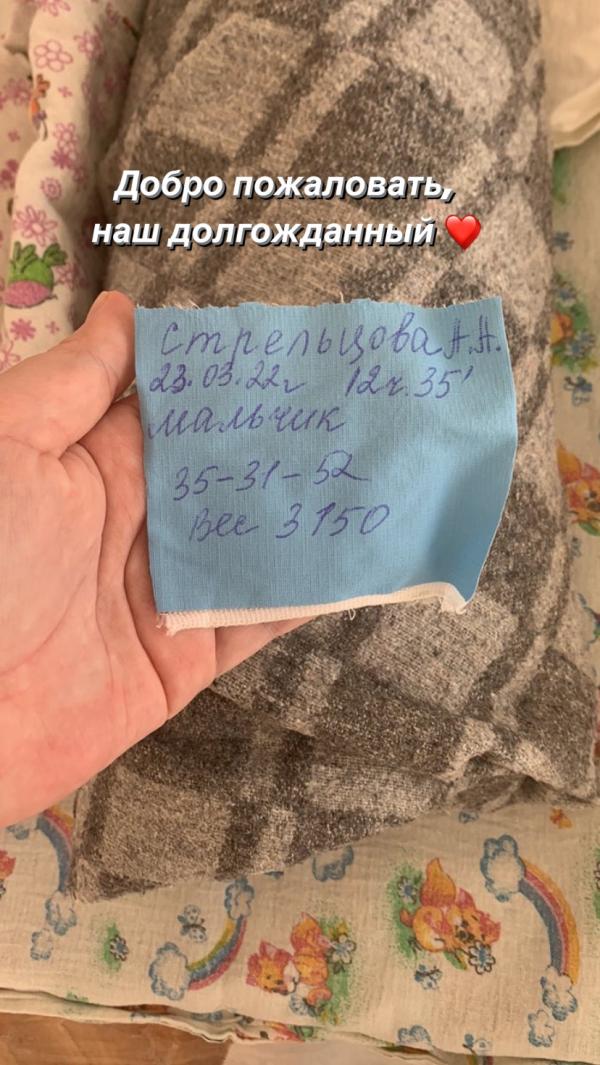 Добро пожаловать,
наш долгожданный ❤️
Стрельцова А.А.
23.03.22г 12ч.35'
мальчик
35-31-52
Вес 3150